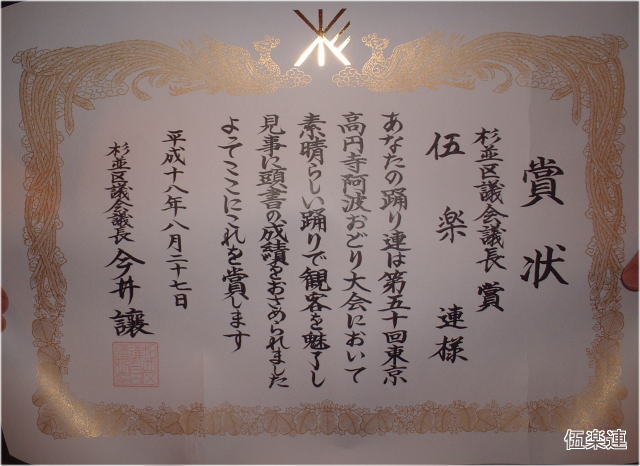 賞状
杉並区議会議長賞
伍楽連様
あなたの踊り連は第五十回東京
高円寺阿波おどり大会において
素晴らしい踊りで観客を魅了し
見事に頭書の成績をおさめられました
よってここにこれを賞します
平成十八年八月二十七日
杉並区議会議長 今井讓
伍楽連